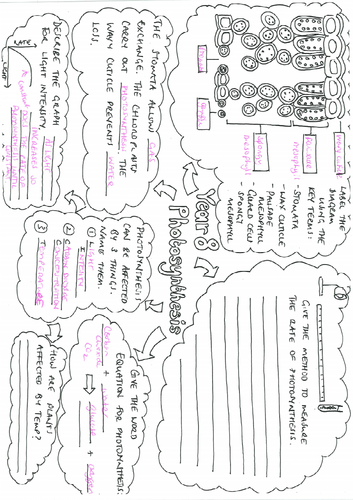 Year 8
Photosynthesis
LABEL THE
DIAGRAM
USING THE
KEY TERMS:
- STOMATA
- WAXY CUTICLE
- PALISADE
MESOPHYLL
- GUARD CELLS
- SPONGY
MESOPHYLL
waxy cuticle
Palisade
mesophyll
mesophyll
Stomata
THE STOMATA ALLOW GAS
EXCHANGE. THE CHLOROPLASTS
CARRY OUT PHOTOSYNTHESIS. THE
WAXY CUTICLE PREVENTS WATER
LOSS.
DESCRIBE THE GRAPH
FOR LIGHT INTENSITY.
RATE
LIGHT
AS LIGHT
INCREASES SO
PHOTOSYNTHESIS
PHOTOSYNTHESIS
CAN BE AFFECTED
BY 3 THINGS.
NAME THEM.
① LIGHT
INTENSITY
② CARBON DIOXIDE
CONCENTRATION
③ TEMPERATURE
GIVE THE METHOD TO MEASURE
THE RATE OF PHOTOSYNTHESIS.
GIVE THE WORD
EQUATION FOR PHOTOSYNTHESIS:
Carbon dioxide + water
CO2
glucose + oxygen
HOW ARE PLANTS
AFFECTED BY TEMP?